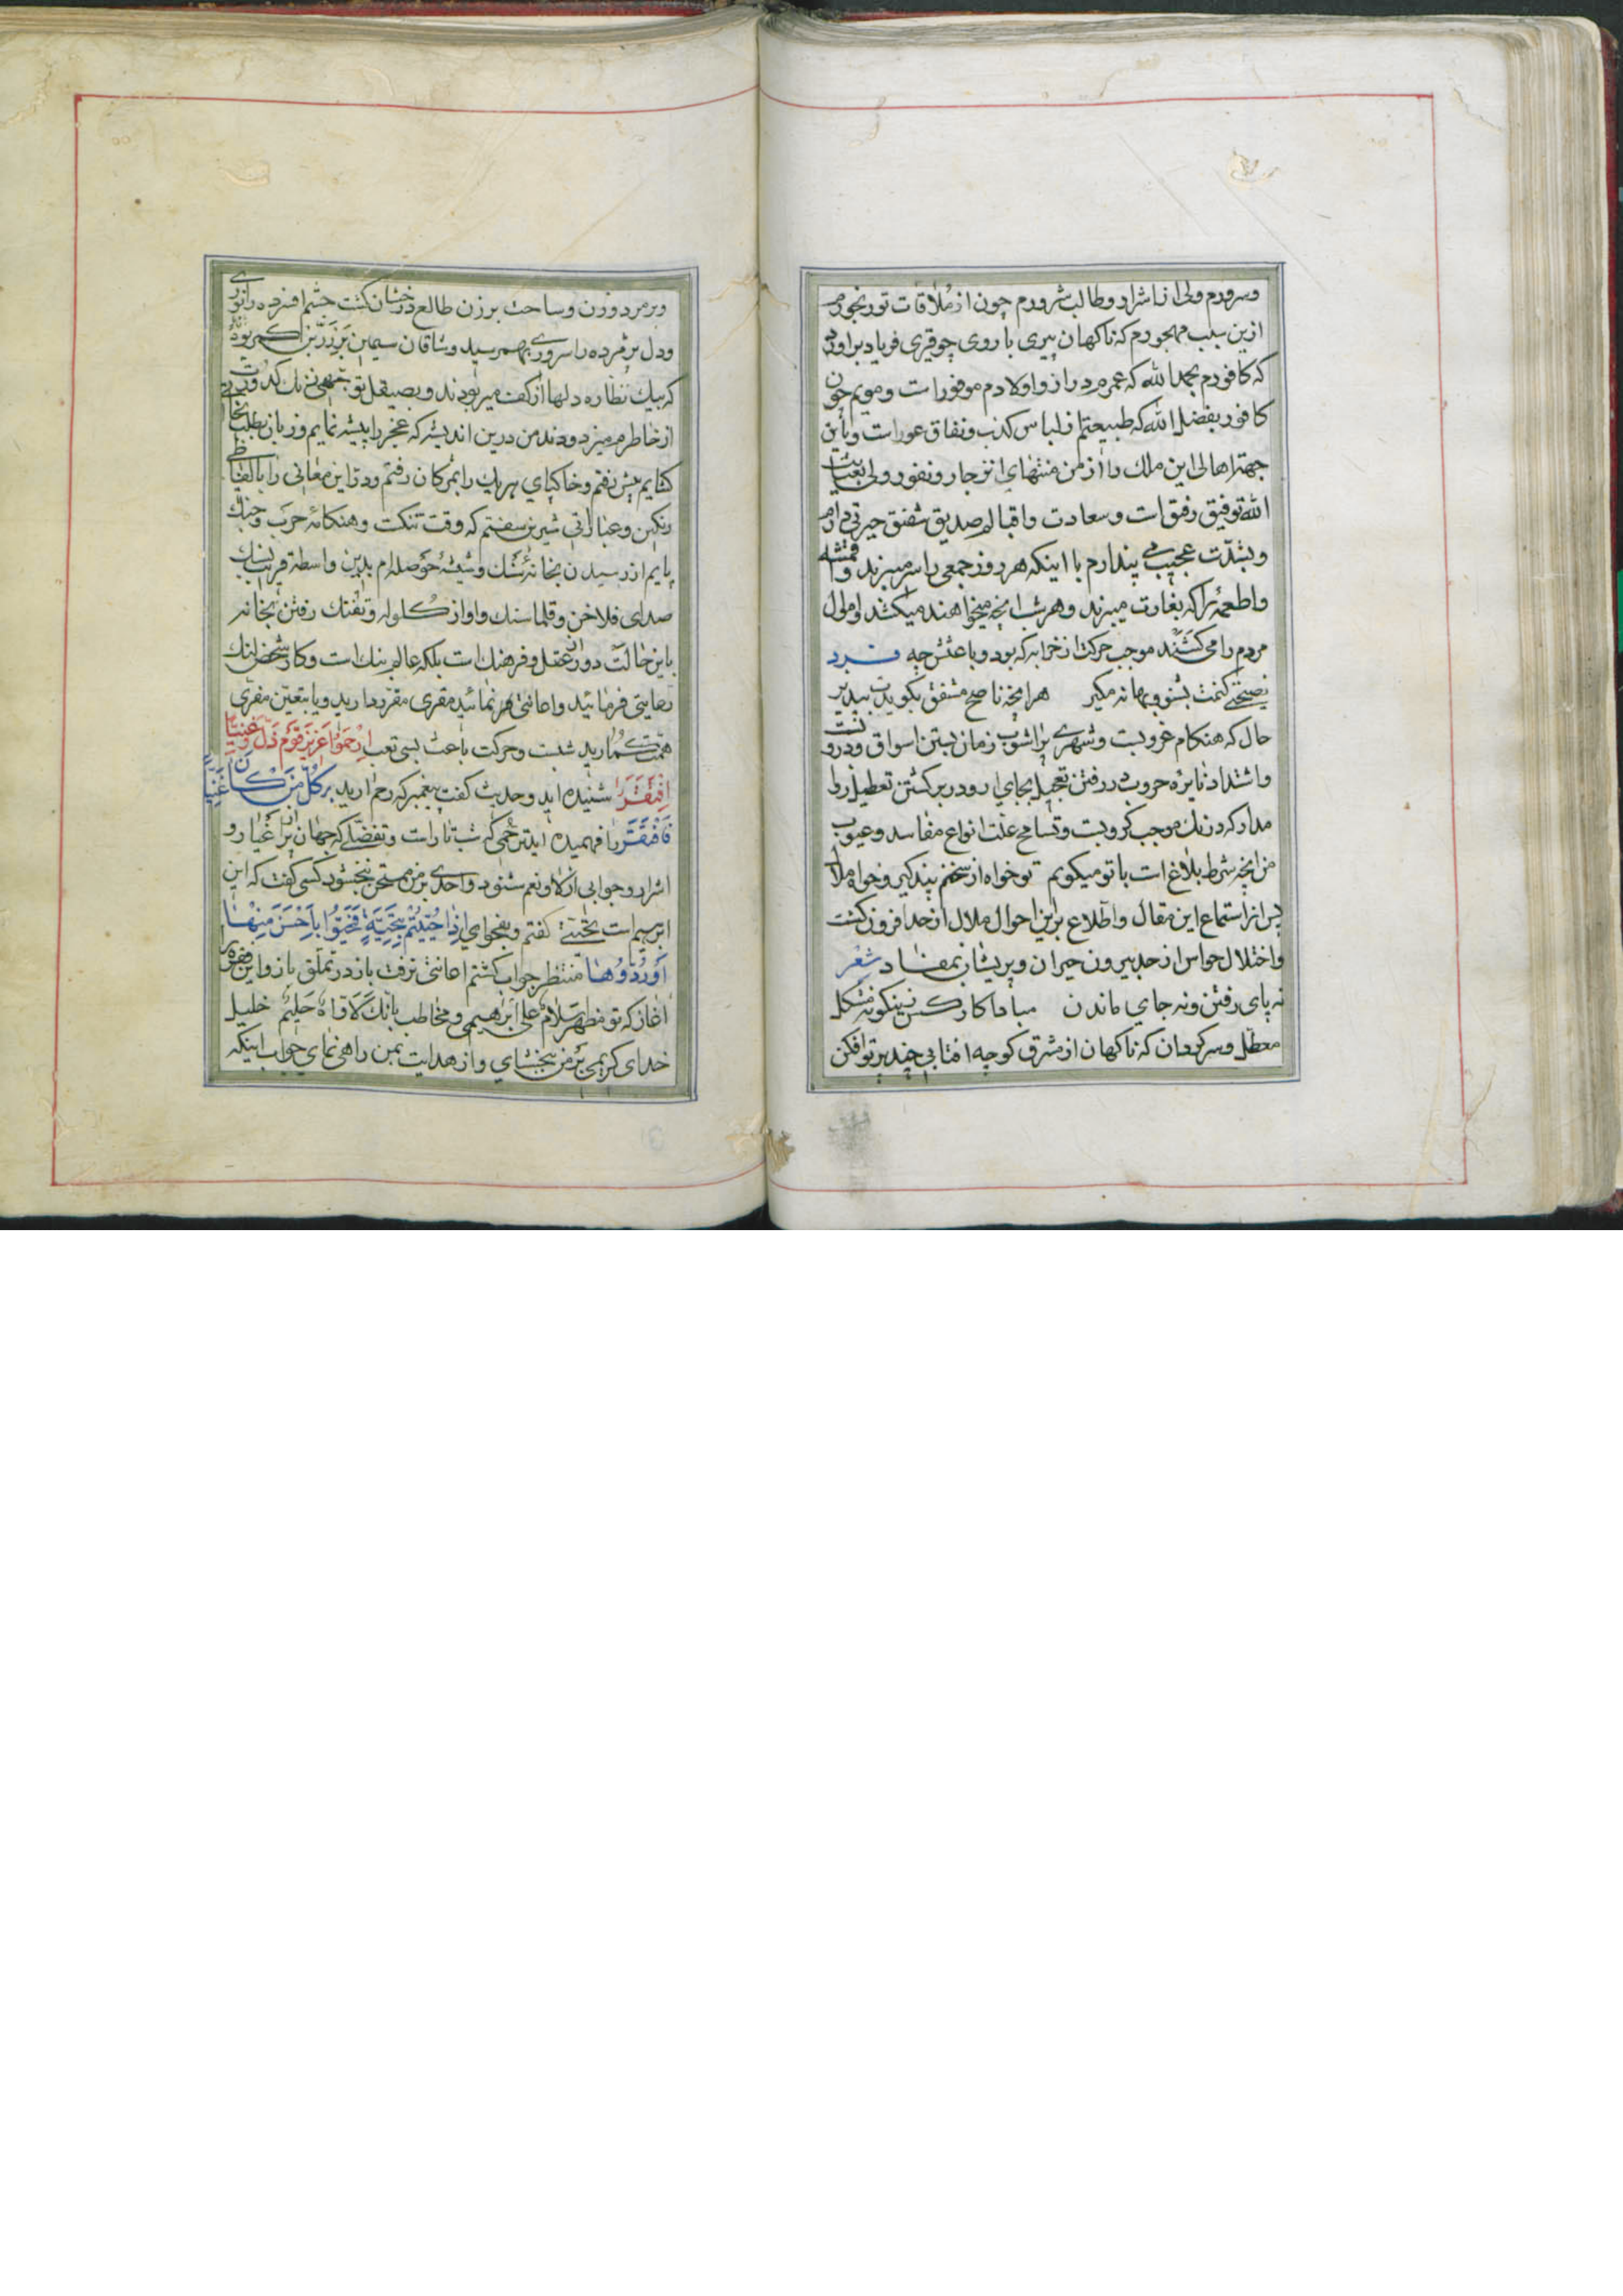 وسرورم ولی از اشرار و طالب شرورم چون از ملاقات تو رنجورم
ازین سبب مهجورم که ناکهان پیری با روی چو قیری فریاد براورد
که کافورم بحمدالله که عمرم دراز و اولادم موفور است و مویم چون
کافور بفضل الله که طبیعتم از لباس کذب و نفاق عور است و باین
جهة اهالی این ملک را از من منتهای انزجار و نفور ولی بعنایت
الله توفیق رفیق است و سعادت و اقبالم صدیق شفیق حیرتی دارم
و بشدت عجیب می پندارم با اینکه هر روز جمعی را سر میبرند و اقمشه
و اطعمه را که بغارت میبرند و هر شب انچه میخواهند میکشند و اموال
مردم را می کشند موجب حرکت از خرابه که بود و باعثش چه فرد
نصیحتی کنمت بشنو و بهانه مکیر هر انچه ناصح مشفق بکویدت بپذیر
حال که هنکام غروبست و شهری پراشوب زمان بستن اسواق و دروبست
و اشتداد نایره حروب در رفتن تعجیل بجای ارو در برکشتن تعطیل روا
مدار که درنک موجب کروبست و تسامح علت انواع مفاسد و عیوب
من انچه شرط بلاغ است با تو میکویم تو خواه از سخنم پند کیر و خواه ملال
پس از استماع این مقال و اطلاع براین احوال ملال از حد افزون کشت
و اختلال حواس از حد بیرون حیران و پریشان بمفاد شعر
نه پای رفتن و نه جای ماندن مبادا کار کس زینکونه مشکل
معطل و سرکردان که ناکهان از مشرق کوچه افتابی چند پرتو افکن
و بر مرد و زن و ساحت برزن طالع درخشان کشت چشم افسرده را نوری
و دل پژمرده را سروری بهم رسید و ساقان سیمین بر زرین کمر بودند
که بیک نظاره دلها از کف میربودند و بصیقل توجهی زنک کدورت
از خاطرم میزدودند من درین اندیشه که عجز را پیشه نمایم و زبان بطلب
کشایم پیش رفتم و خاکپای هریک را بمژکان رفتم و در این معانی را بالفاظ
رنکین و عباراتی شیرین سفتم که وقت تنکست و هنکامه حرب و جنک
پایم از رسیدن بخانه سنک و شیشه حوصله ام بدین واسطه قریب بسنک
صدای فلاخن و قلماسنک و اواز کلوله و تفنک رفتن بخانه
باین حالت دور از عقل و فرهنک است بلکه عالم بنک است و کار شخص لنک
رعایتی فرمائید و اعانتی هر نمائید مقری مقرر دارید و یا بتعیین مفری
همت کمارید شبست و حرکت باعث بسی تعب ارحموا عزیز قوم ذل و غنیا
افتقر را شنیده اید و حدیث کفت پیغمبر که رحم ارید بر کل من کان غنیا
فافتقر را فهمیده اید ترحمی که شب تار است و تفضلی که جهان پر اغیار و
اشرار و جوابی از لا و نعم نشنود و احدی بر من ممتحن نبخشود کسی کفت که این
ابرهیم است تحیتی کفتم و بفحوای اذا حییتم بتحیة فحیوا باحسن منها
او ردوها منتظر جواب کشتم اعانتی نرفت باز در تملق باز و این فقره را
اغاز که تو مظهر سلام علی ابرهیمی و مخاطب بانک لاواه حلیم خلیل
خدای کریمی بر من ببخشای و از هدایت بمن راهی نمای جواب اینکه